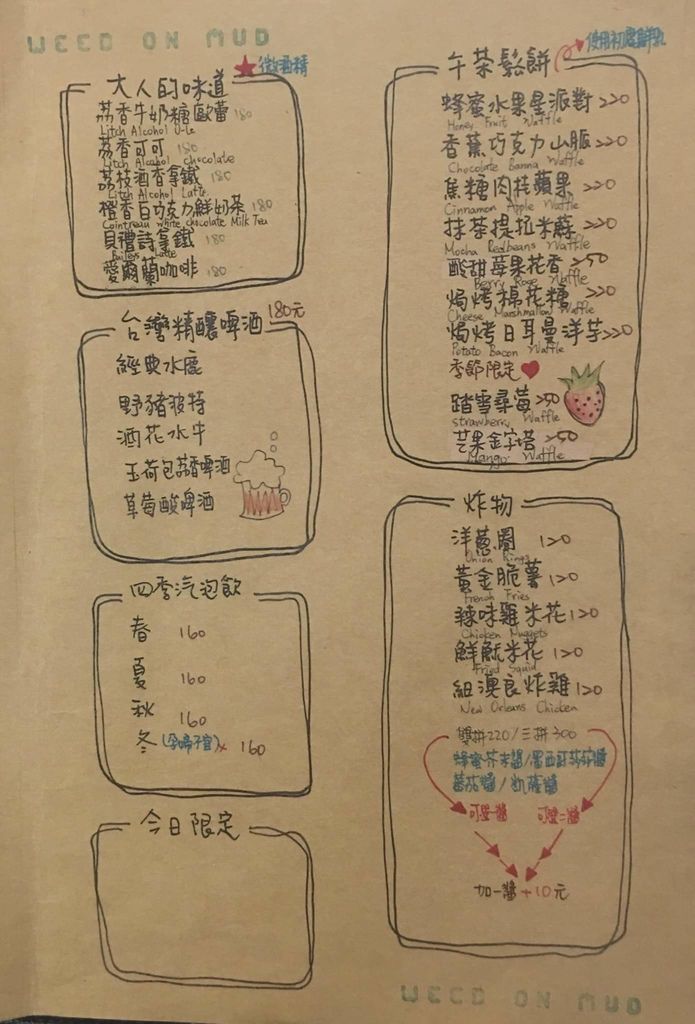 WEED ON MUD
大人的味道
★微酒精
荔香牛奶糖歐蕾 180
Litch Alcohol O-le
荔香可可 180
Litch Alcohol chocolate
荔枝酒香拿鐵 180
Litch Alcohol Latte
橙香白巧克力鮮奶茶 180
Cointreau white chocolate Milk Tea
貝禮詩拿鐵 180
Baileys Latte
愛爾蘭咖啡 180
台灣精釀啤酒 180元
經典水鹿
野豬波特
酒花水牛
玉荷包荔香啤酒
草莓酸啤酒
四季汽泡飲
春 160
夏 160
秋 160
冬(孕婦不宜)× 160
今日限定
午茶鬆餅
使用初鹿鮮乳
蜂蜜水果星派對 220
Honey Fruit Waffle
香蕉巧克力山脈 220
Chocolate Banna Waffle
焦糖肉桂蘋果 220
Cinnamon Apple Waffle
抹茶提拉米蘇 220
Mocha Redbeans Waffle
酸甜莓果花香 250
Berry Rose Waffle
焗烤棉花糖 220
Cheese Marshmallow Waffle
焗烤日耳曼洋芋 220
Potato Bacon Waffle
季節限定
踏雪尋莓 250
strawberry Waffle
芒果金字塔 250
Mango Waffle
炸物
洋蔥圈 120
Onion Rings
黃金脆薯 120
French Fries
辣味雞米花 120
Chicken Nuggets
鮮魷米花 120
Fried Squid
紐澳良炸雞 120
New Orleans Chicken
雙拼220/三拼300
蜂蜜芥末醬/墨西哥莎莎醬
蕃茄醬/凱薩醬
可選一醬 可選二醬
加一醬+10元
WEED ON MUD